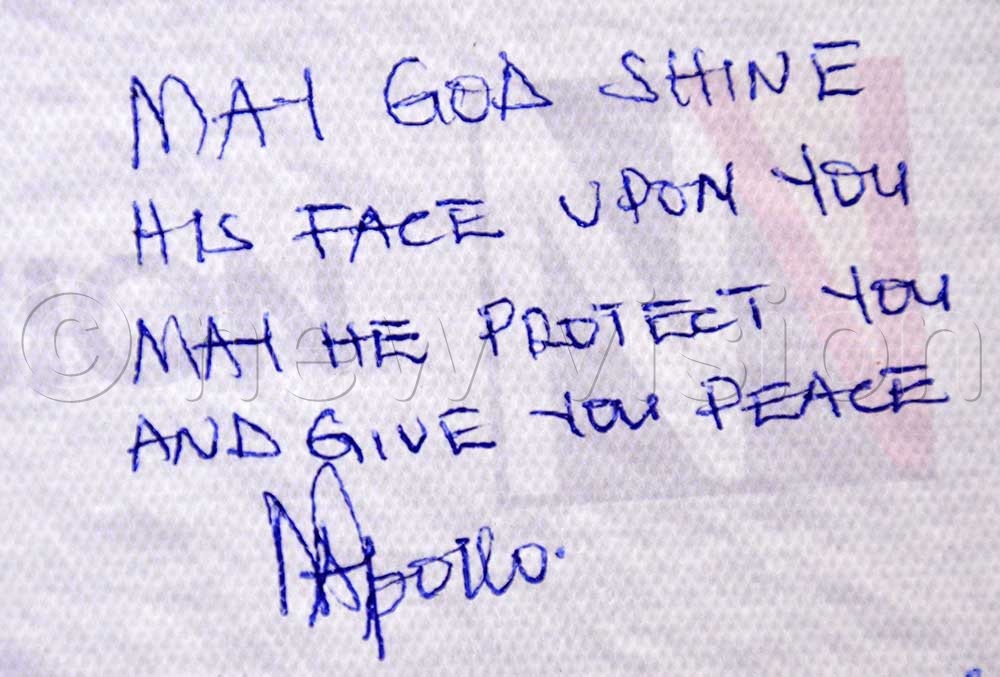 MAY GOD SHINE
HIS FACE UPON YOU
MAY HE PROTECT YOU
AND GIVE YOU PEACE
NApollo.
© new vision